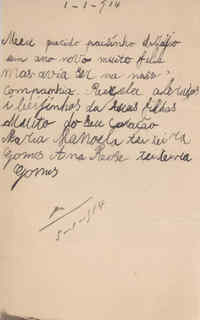 1-1-914
Meu querido paisinho desejo
um ano novo muito feliz
mas avia ser na nosa
companhia. Receba abraços
i beijinhos da suas filhas
Muito do seu coração
Maria Manoela teixeira
Gomes Ana Rosa teixeira
Gomes
5-1-914